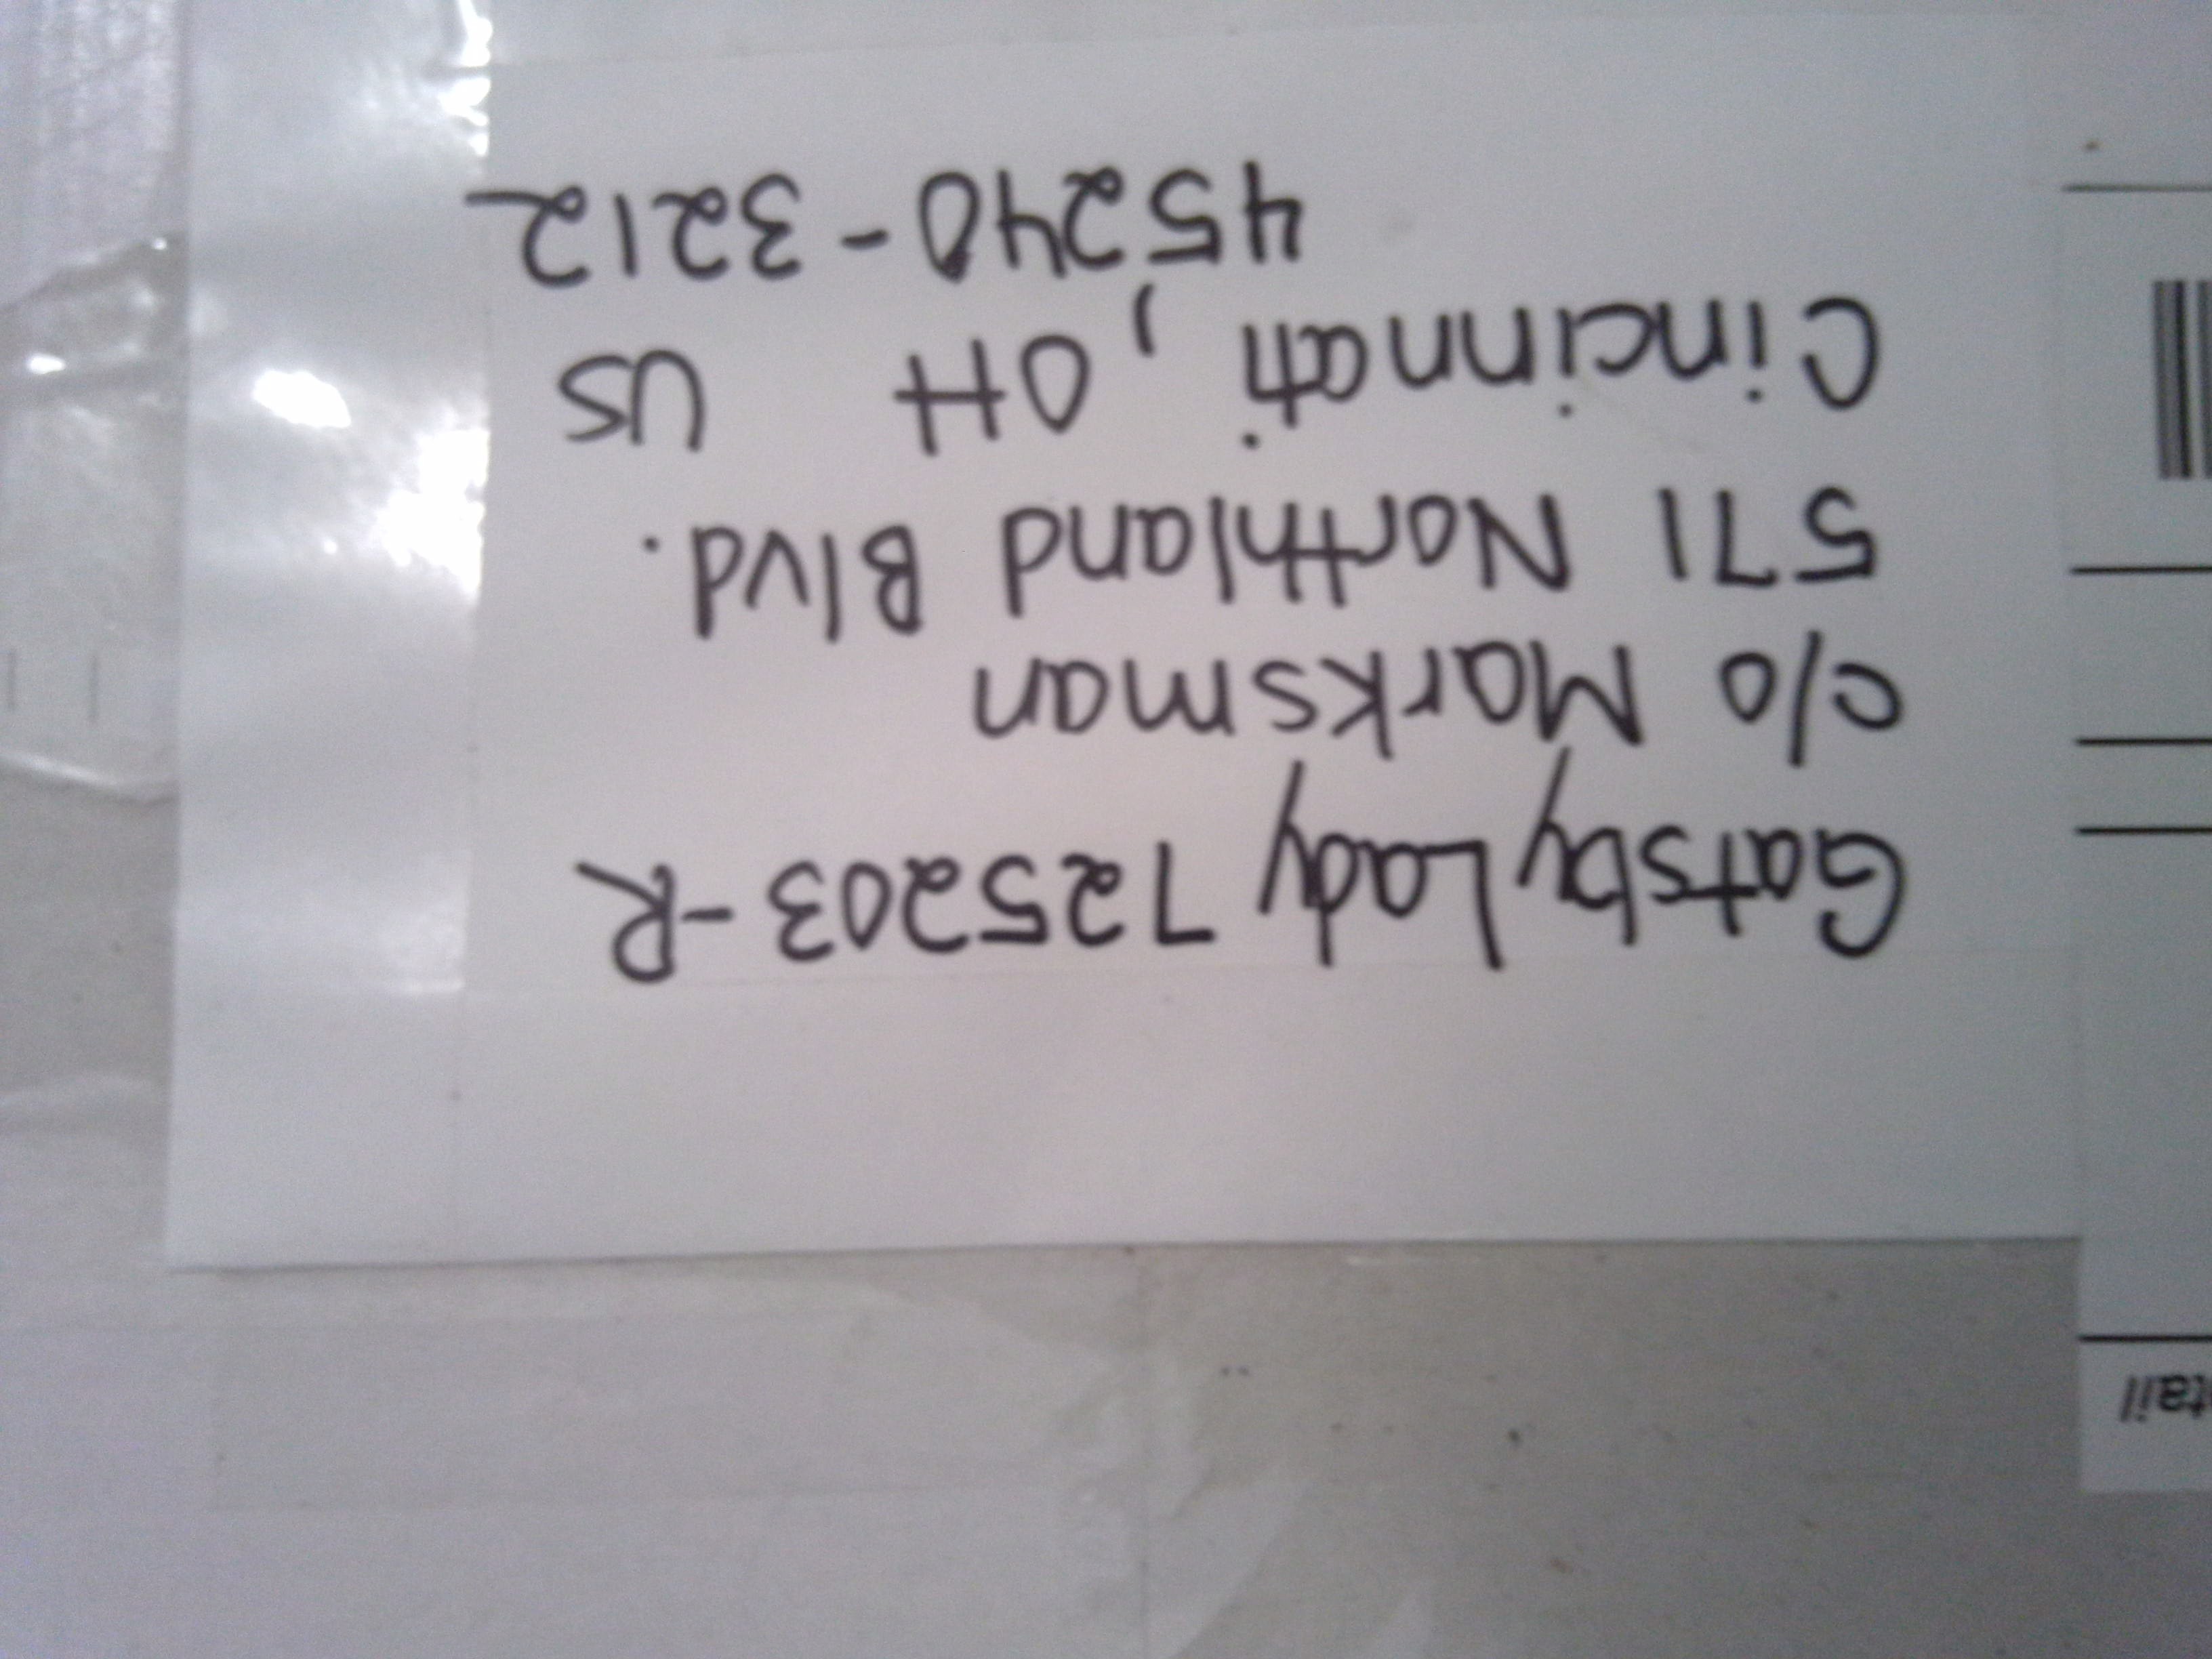 Gatsby Lady 725203-R
c/o Marksman
571 Northland Blvd.
Cincinnati, OH US
45240-3212
tail